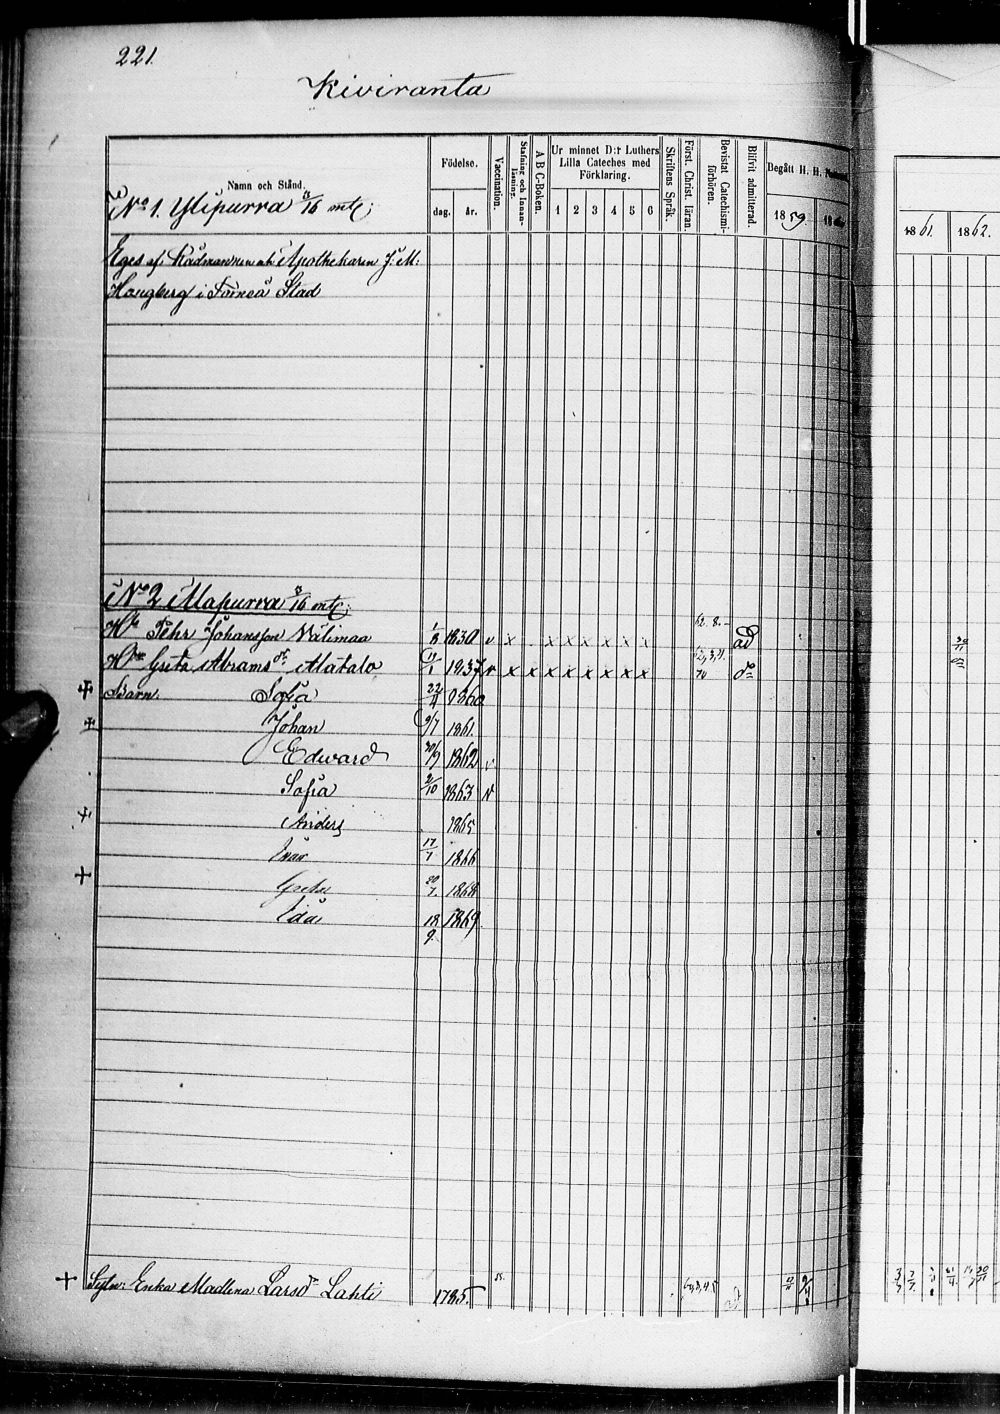 221.
Kiviranta
Namn och Stånd.
Födelse.
dag. år.
Vaccination.
Stafning och Innanläsning.
A B C-Boken.
Ur minnet D:r Luthers Lilla Cateches med Förklaring.
1 2 3 4 5 6
Skriftens Språk.
Först. Christ. läran.
Bevistat Catechismiförhören.
Blifvit admitterad.
Begått H. H.
1859. 18
1861. 1862.
No 1. Ylipurra /16 mtl:
Eges af Rådmannen och Apothekaren J: M:
Hougberg i Torneå Stad
No 2 Alapurra /16 mtl:
Pehr Johansson Välimaa 1830 v x x x x x x x 62. 8. ad
Greta Abramsdr Alatalo 1837 v x x x x x x x x do
Barn: Sofia 22/4 1860
Johan 9/7 1861.
Edward 1862 v
Sofia 2/10 1863 v
Anders 1865
Ivar 17/1 1866
Greta 20/7. 1868
Ida 18/9. 1869
Enka Madlena Larsdr Lahti 1785.